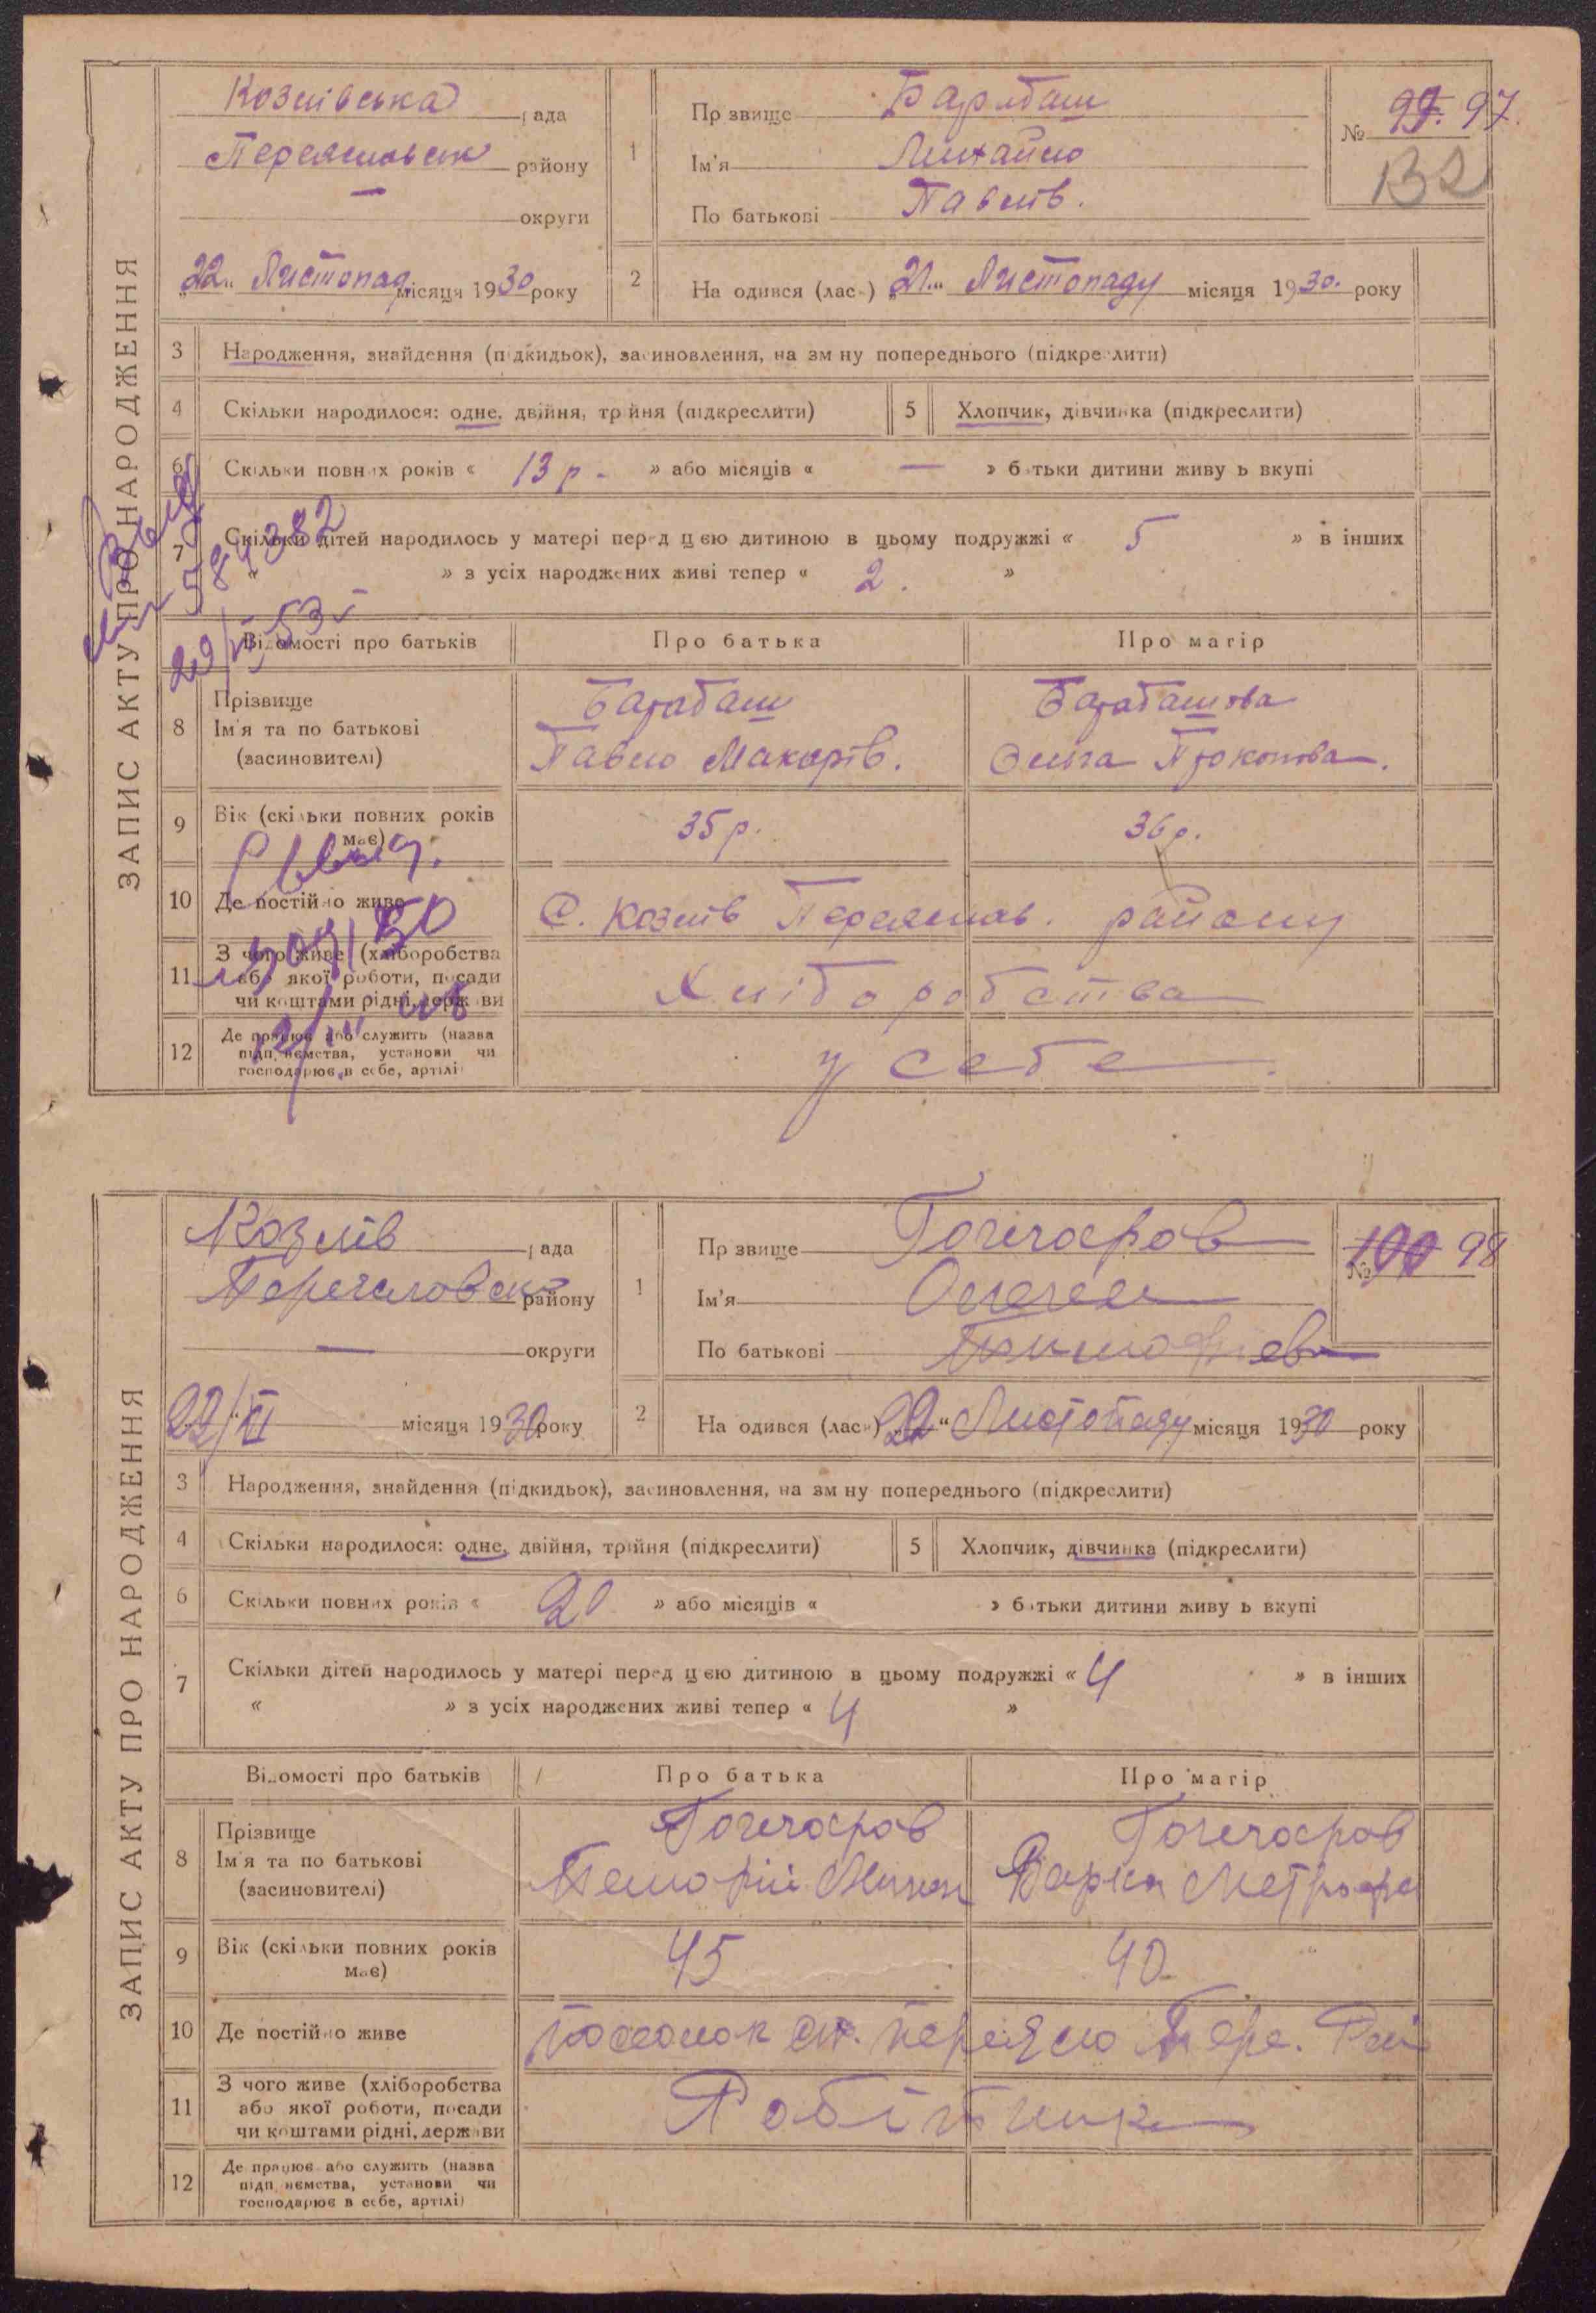 ЗАПИС АКТУ ПРО НАРОДЖЕННЯ
Козлівська рада
Переяславськ району
— округи
„22„ Листопад місяця 1930 року
1
Прізвище Барабаш
Ім'я Михайло
По батькові Павлів.
№ 99. 97.
132
2
Народився (лась) „21„ Листопаду місяця 1930. року
3 Народження, знайдення (підкидьок), засиновлення, на зміну попереднього (підкреслити)
4 Скільки народилося: одне, двійня, трійня (підкреслити)
5 Хлопчик, дівчинка (підкреслити)
6 Скільки повних років « 13 р. » або місяців « — » батьки дитини живуть вкупі
7 Скільки дітей народилось у матері перед цією дитиною в цьому подружжі « 5 » в інших
« » з усіх народжених живі тепер « 2. »
584382
29/VI 53
Відомості про батьків Про батька Про матір
8 Прізвище
Ім'я та по батькові
(засиновителі)
Барабаш
Павло Макарів.
Барабашова
Ольга Прокопова.
9 Вік (скільки повних років має) 35 р. 36 р.
10 Де постійно живе С. Козлів Переяслав. району
11 З чого живе (хліборобства або якої роботи, посади чи коштами рідні, держави Хліборобства
12 Де працює або служить (назва підприємства, установи чи господарює в себе, артілі) у себе.
ЗАПИС АКТУ ПРО НАРОДЖЕННЯ
Козлів рада
Переяславськ району
— округи
22/XI місяця 1930 року
1
Прізвище Гончаров
Ім'я
По батькові
№ 100 98
2
Народився (лась) „22“ Листопаду місяця 1930 року
3 Народження, знайдення (підкидьок), засиновлення, на зміну попереднього (підкреслити)
4 Скільки народилося: одне, двійня, трійня (підкреслити)
5 Хлопчик, дівчинка (підкреслити)
6 Скільки повних років « 20 » або місяців « » батьки дитини живуть вкупі
7 Скільки дітей народилось у матері перед цією дитиною в цьому подружжі « 4 » в інших
« » з усіх народжених живі тепер « 4 »
Відомості про батьків Про батька Про матір
8 Прізвище
Ім'я та по батькові
(засиновителі)
Гончаров
Гончаров
Варка
9 Вік (скільки повних років має) 45 40
10 Де постійно живе
11 З чого живе (хліборобства або якої роботи, посади чи коштами рідні, держави Робітник
12 Де працює або служить (назва підприємства, установи чи господарює в себе, артілі)